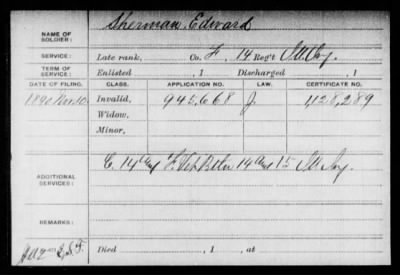 NAME OF SOLDIER: Sherman, Edward
SERVICE: Late rank, Co. F, 14 Reg't
TERM OF SERVICE: Enlisted , 1 Discharged , 1
DATE OF FILING. CLASS. APPLICATION NO. LAW. CERTIFICATE NO.
1890 Nov. 10 Invalid, 945,668 J. 1,128,289
Widow,
Minor,
ADDITIONAL SERVICES: C. 14 14 15
REMARKS:
Died , 1 , at